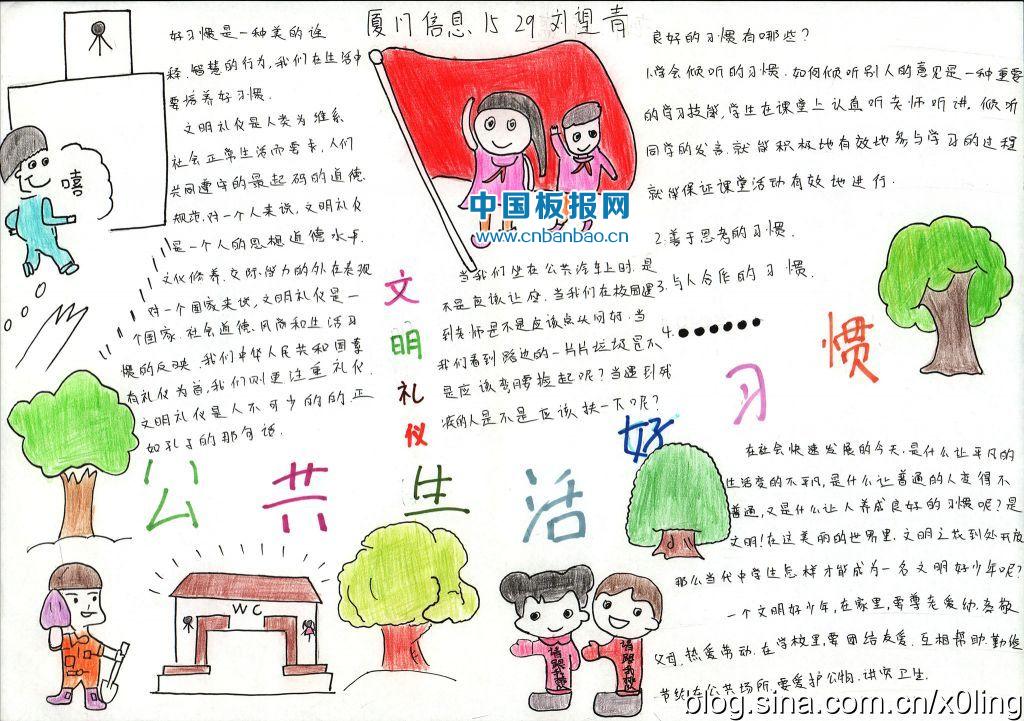 厦门信息 15 29 刘望青
好习惯是一种美的诠
释.智慧的行为,我们在生活中
要培养好习惯.
文明礼仪是人类为维系
社会正常生活而要素,人们
共同遵守的最起码的道德.
规范.对一个人来说,文明礼仪
是一个人的思想道德水平.
文化修养.交际.能力的外在表现
对一个国家来说,文明礼仪是一
个国家.社会道德.风尚和生活习
惯的反映.我们中华人民共和国尊
有礼仪为首,我们则更注重礼仪.
文明礼仪是人不可少的的.正
如孔子的那句话.
嘻
中国板报网
www.cnbanbao.cn
文
明
礼
仪
当我们坐在公共汽车上时.是
不是应该让座.当我们在校园遇
到老师是不是应该点头问好.当
我们看到路边的一片片垃圾是不
是应该弯腰捡起呢?当遇到残
疾的人是不是应该扶一下呢?
良好的习惯有哪些?
1.学会倾听的习惯.如何倾听别人的意见是一种重要
的学习技能,学生在课堂上认真听老师听讲.倾听
同学的发言.就能积极地有效地参与学习的过程
就能保证课堂活动有效地进行.
2.善于思考的习惯.
3.与人合作的习惯.
4.●●●●●●
好 习 惯
公 共 生 活
在社会快速发展的今天.是什么让平凡的
生活变的不平凡,是什么让普通的人变得不
普通,又是什么让人养成良好的习惯呢?是
文明!在这美丽的世界里.文明之花到处开放
那么当代中学生怎样才能成为一名文明好少年呢?
一个文明好少年,在家里,要尊老爱幼.孝敬
父母.热爱劳动.在学校里要团结友爱.互相帮助.勤俭
节约.在公共场所,要爱护公物.讲究卫生.
WC
请跟我来
请跟我来
blog.sina.com.cn/x0ling